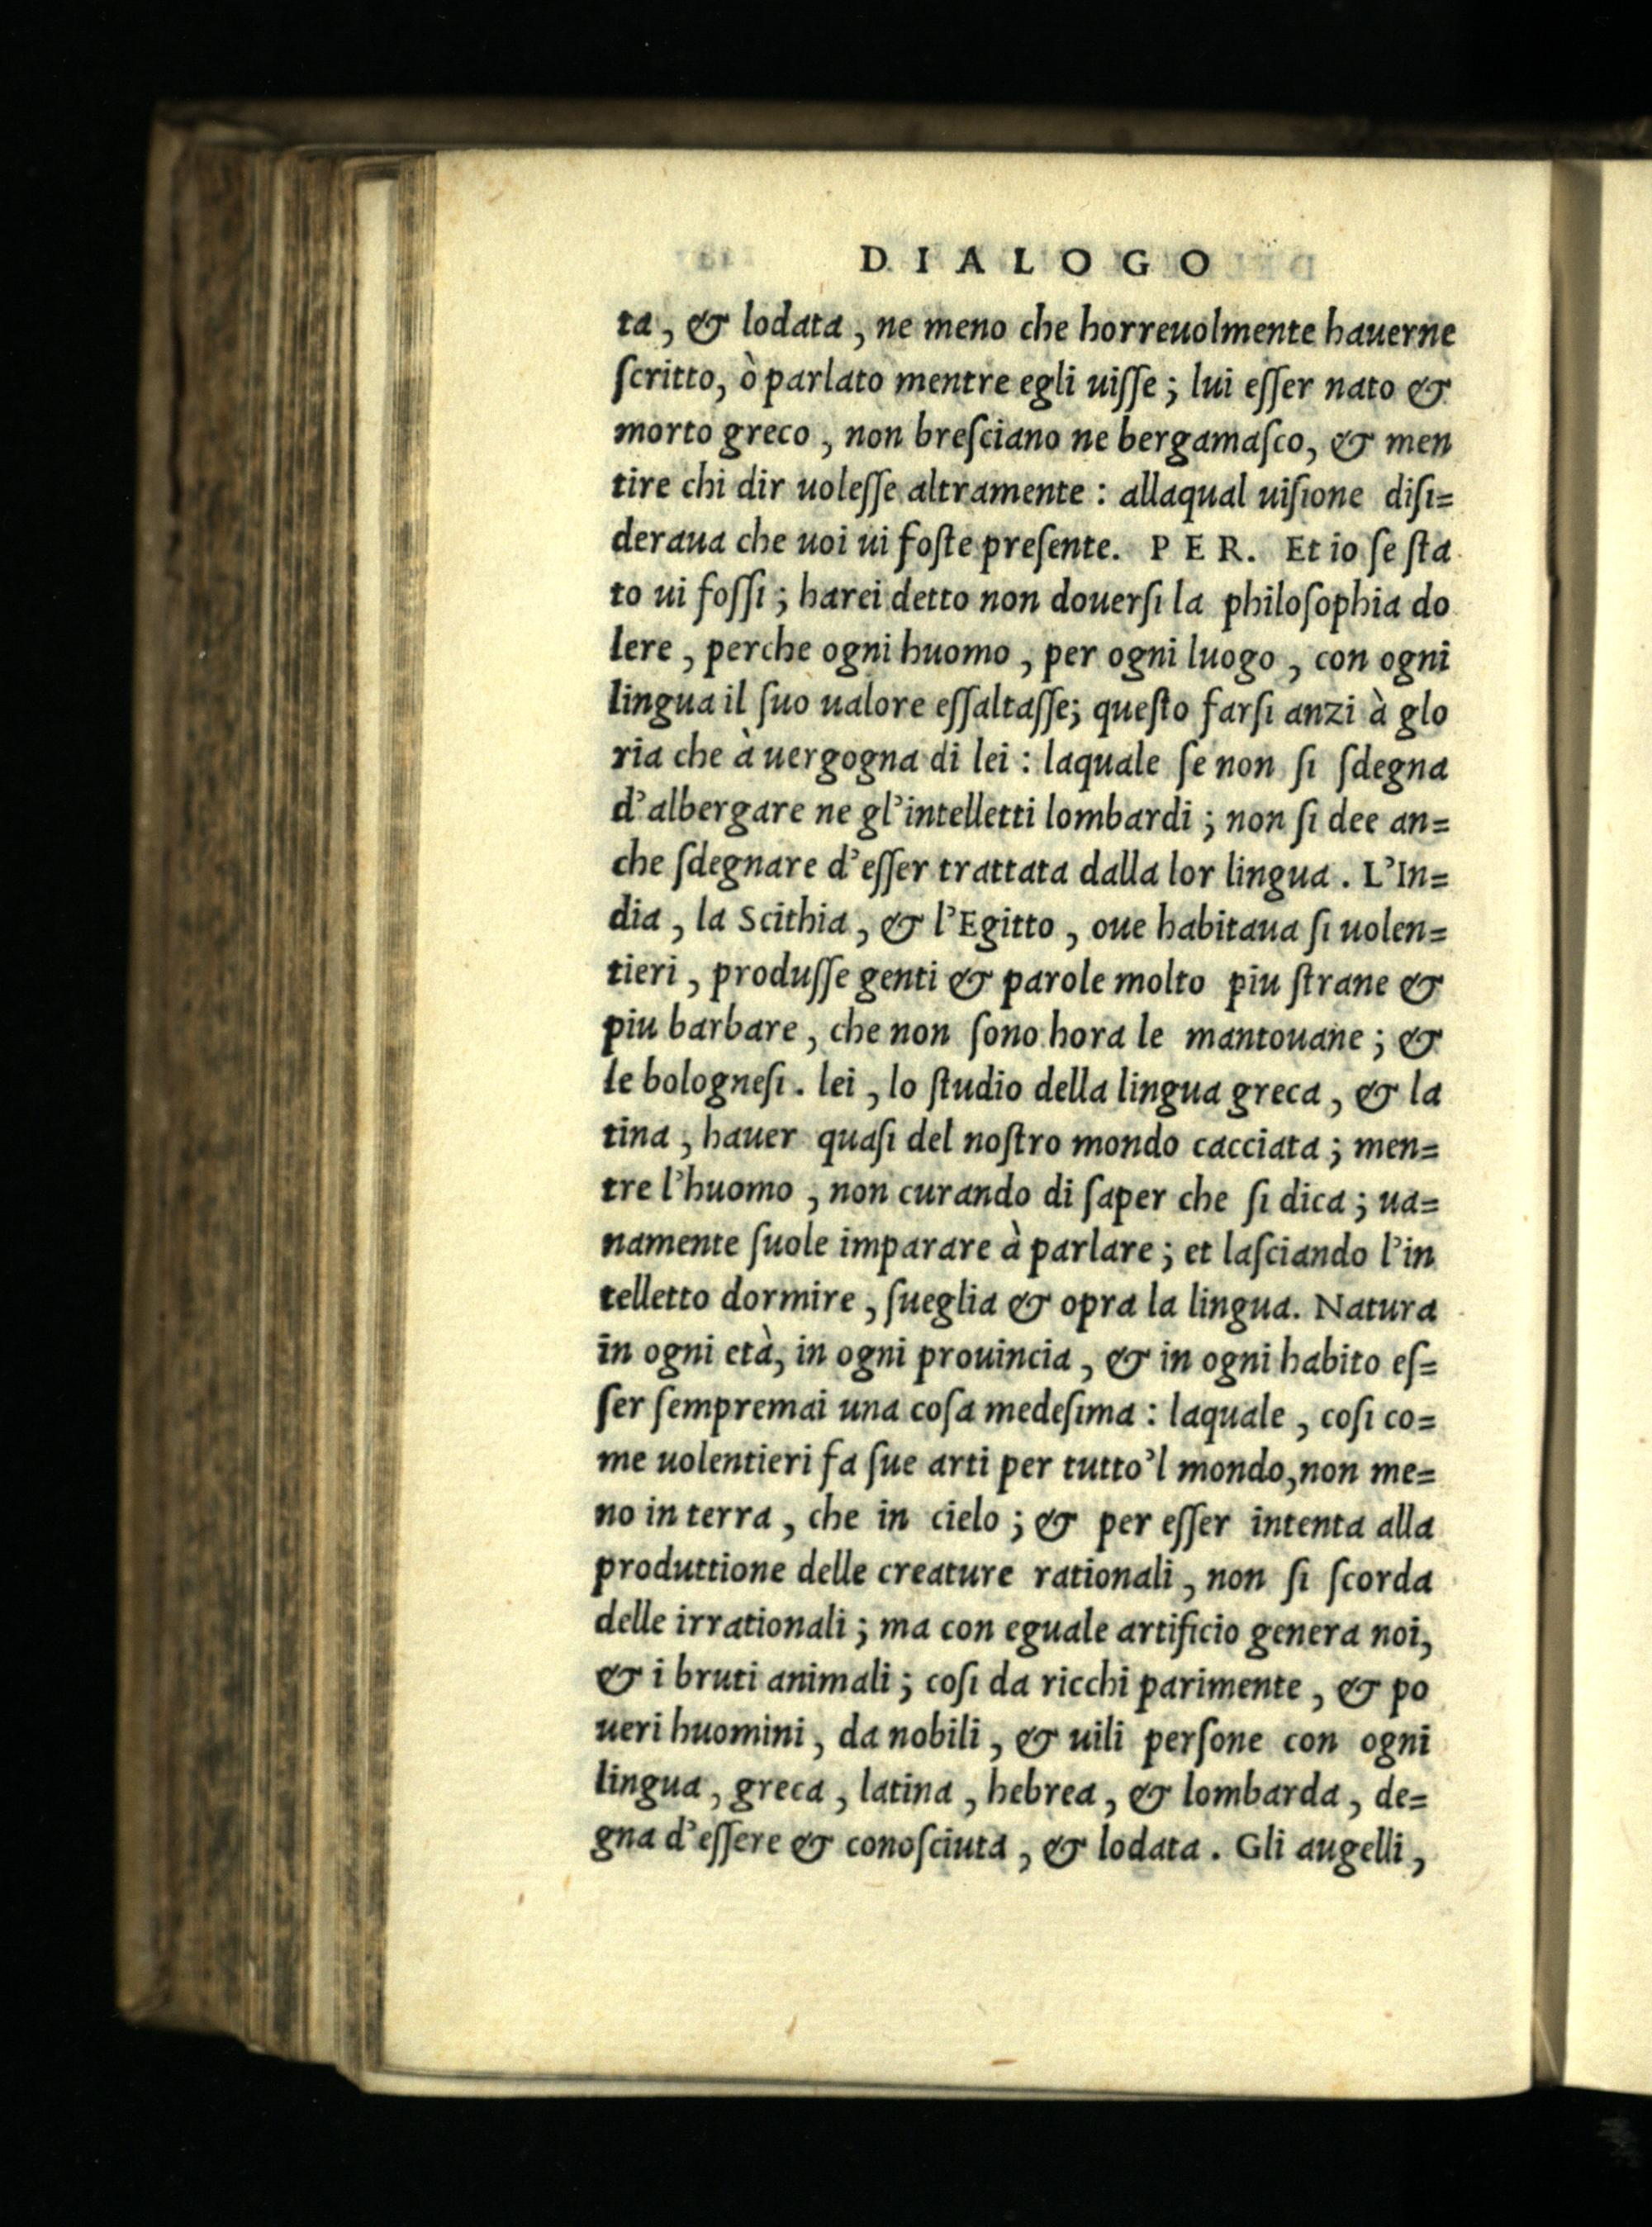 DIALOGO
ta, & lodata, ne meno che horreuolmente hauerne
ſcritto, ò parlato mentre egli uiſſe; lui eſſer nato &
morto greco, non breſciano ne bergamaſco, & men
tire chi dir uoleſſe altramente: allaqual uiſione diſi=
deraua che uoi ui foſte preſente. PER. Et io ſe ſta
to ui foſſi; harei detto non douerſi la philoſophia do
lere, perche ogni huomo, per ogni luogo, con ogni
lingua il ſuo ualore eſſaltaſſe; queſto farſi anzi à glo
ria che à uergogna di lei: laquale ſe non ſi ſdegna
d'albergare ne gl'intelletti lombardi; non ſi dee an=
che ſdegnare d'eſſer trattata dalla lor lingua. L'In=
dia, la Scithia, & l'Egitto, oue habitaua ſi uolen=
tieri, produſſe genti & parole molto piu ſtrane &
piu barbare, che non ſono hora le mantouane; &
le bologneſi. lei, lo ſtudio della lingua greca, & la
tina, hauer quaſi del noſtro mondo cacciata; men=
tre l'huomo, non curando di ſaper che ſi dica; ua=
namente ſuole imparare à parlare; et laſciando l'in
telletto dormire, ſueglia & opra la lingua. Natura
in ogni età, in ogni prouincia, & in ogni habito eſ=
ſer ſempremai una coſa medeſima: laquale, coſi co=
me uolentieri fa ſue arti per tutto'l mondo, non me=
no in terra, che in cielo; & per eſſer intenta alla
produttione delle creature rationali, non ſi ſcorda
delle irrationali; ma con eguale artificio genera noi,
& i bruti animali; coſi da ricchi parimente, & po
ueri huomini, da nobili, & uili perſone con ogni
lingua, greca, latina, hebrea, & lombarda, de=
gna d'eſſere & conoſciuta, & lodata. Gli augelli,